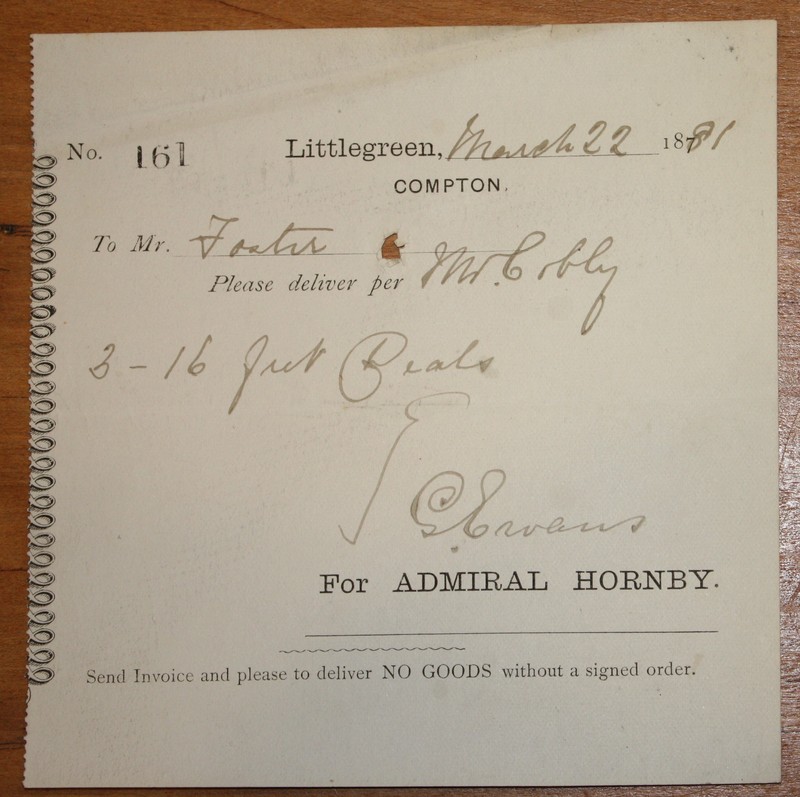 No. 161 Littlegreen, March 22 1881
COMPTON.
To Mr. Foster
Please deliver per Mr. Cobby
3 - 16 feet Deals
G Evans
For ADMIRAL HORNBY.
Send Invoice and please to deliver NO GOODS without a signed order.